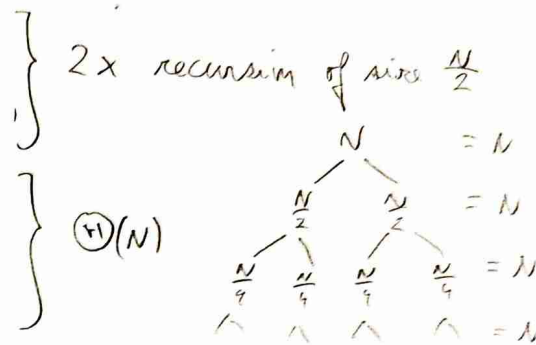 2x recursion of size N/2
N = N
N/2 N/2 = N
Θ(N)
N/4 N/4 N/4 N/4 = N
= N